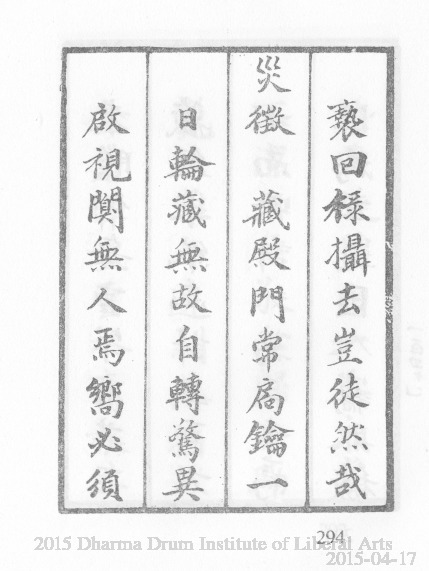 褻回祿攝去豈徒然哉
災徵 藏殿門常扃鑰一
日輪藏無故自轉驚異
啟視闃無人焉嚮必須
294
2015 Dharma Drum Institute of Liberal Arts
2015-04-17